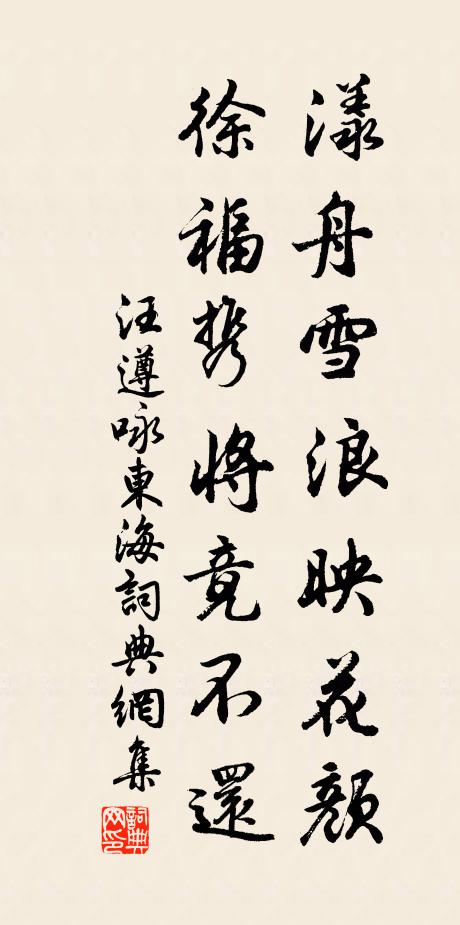 漾舟雪浪映花顏
徐福携將竟不還
汪遵咏東海詞典網集
詞典网印